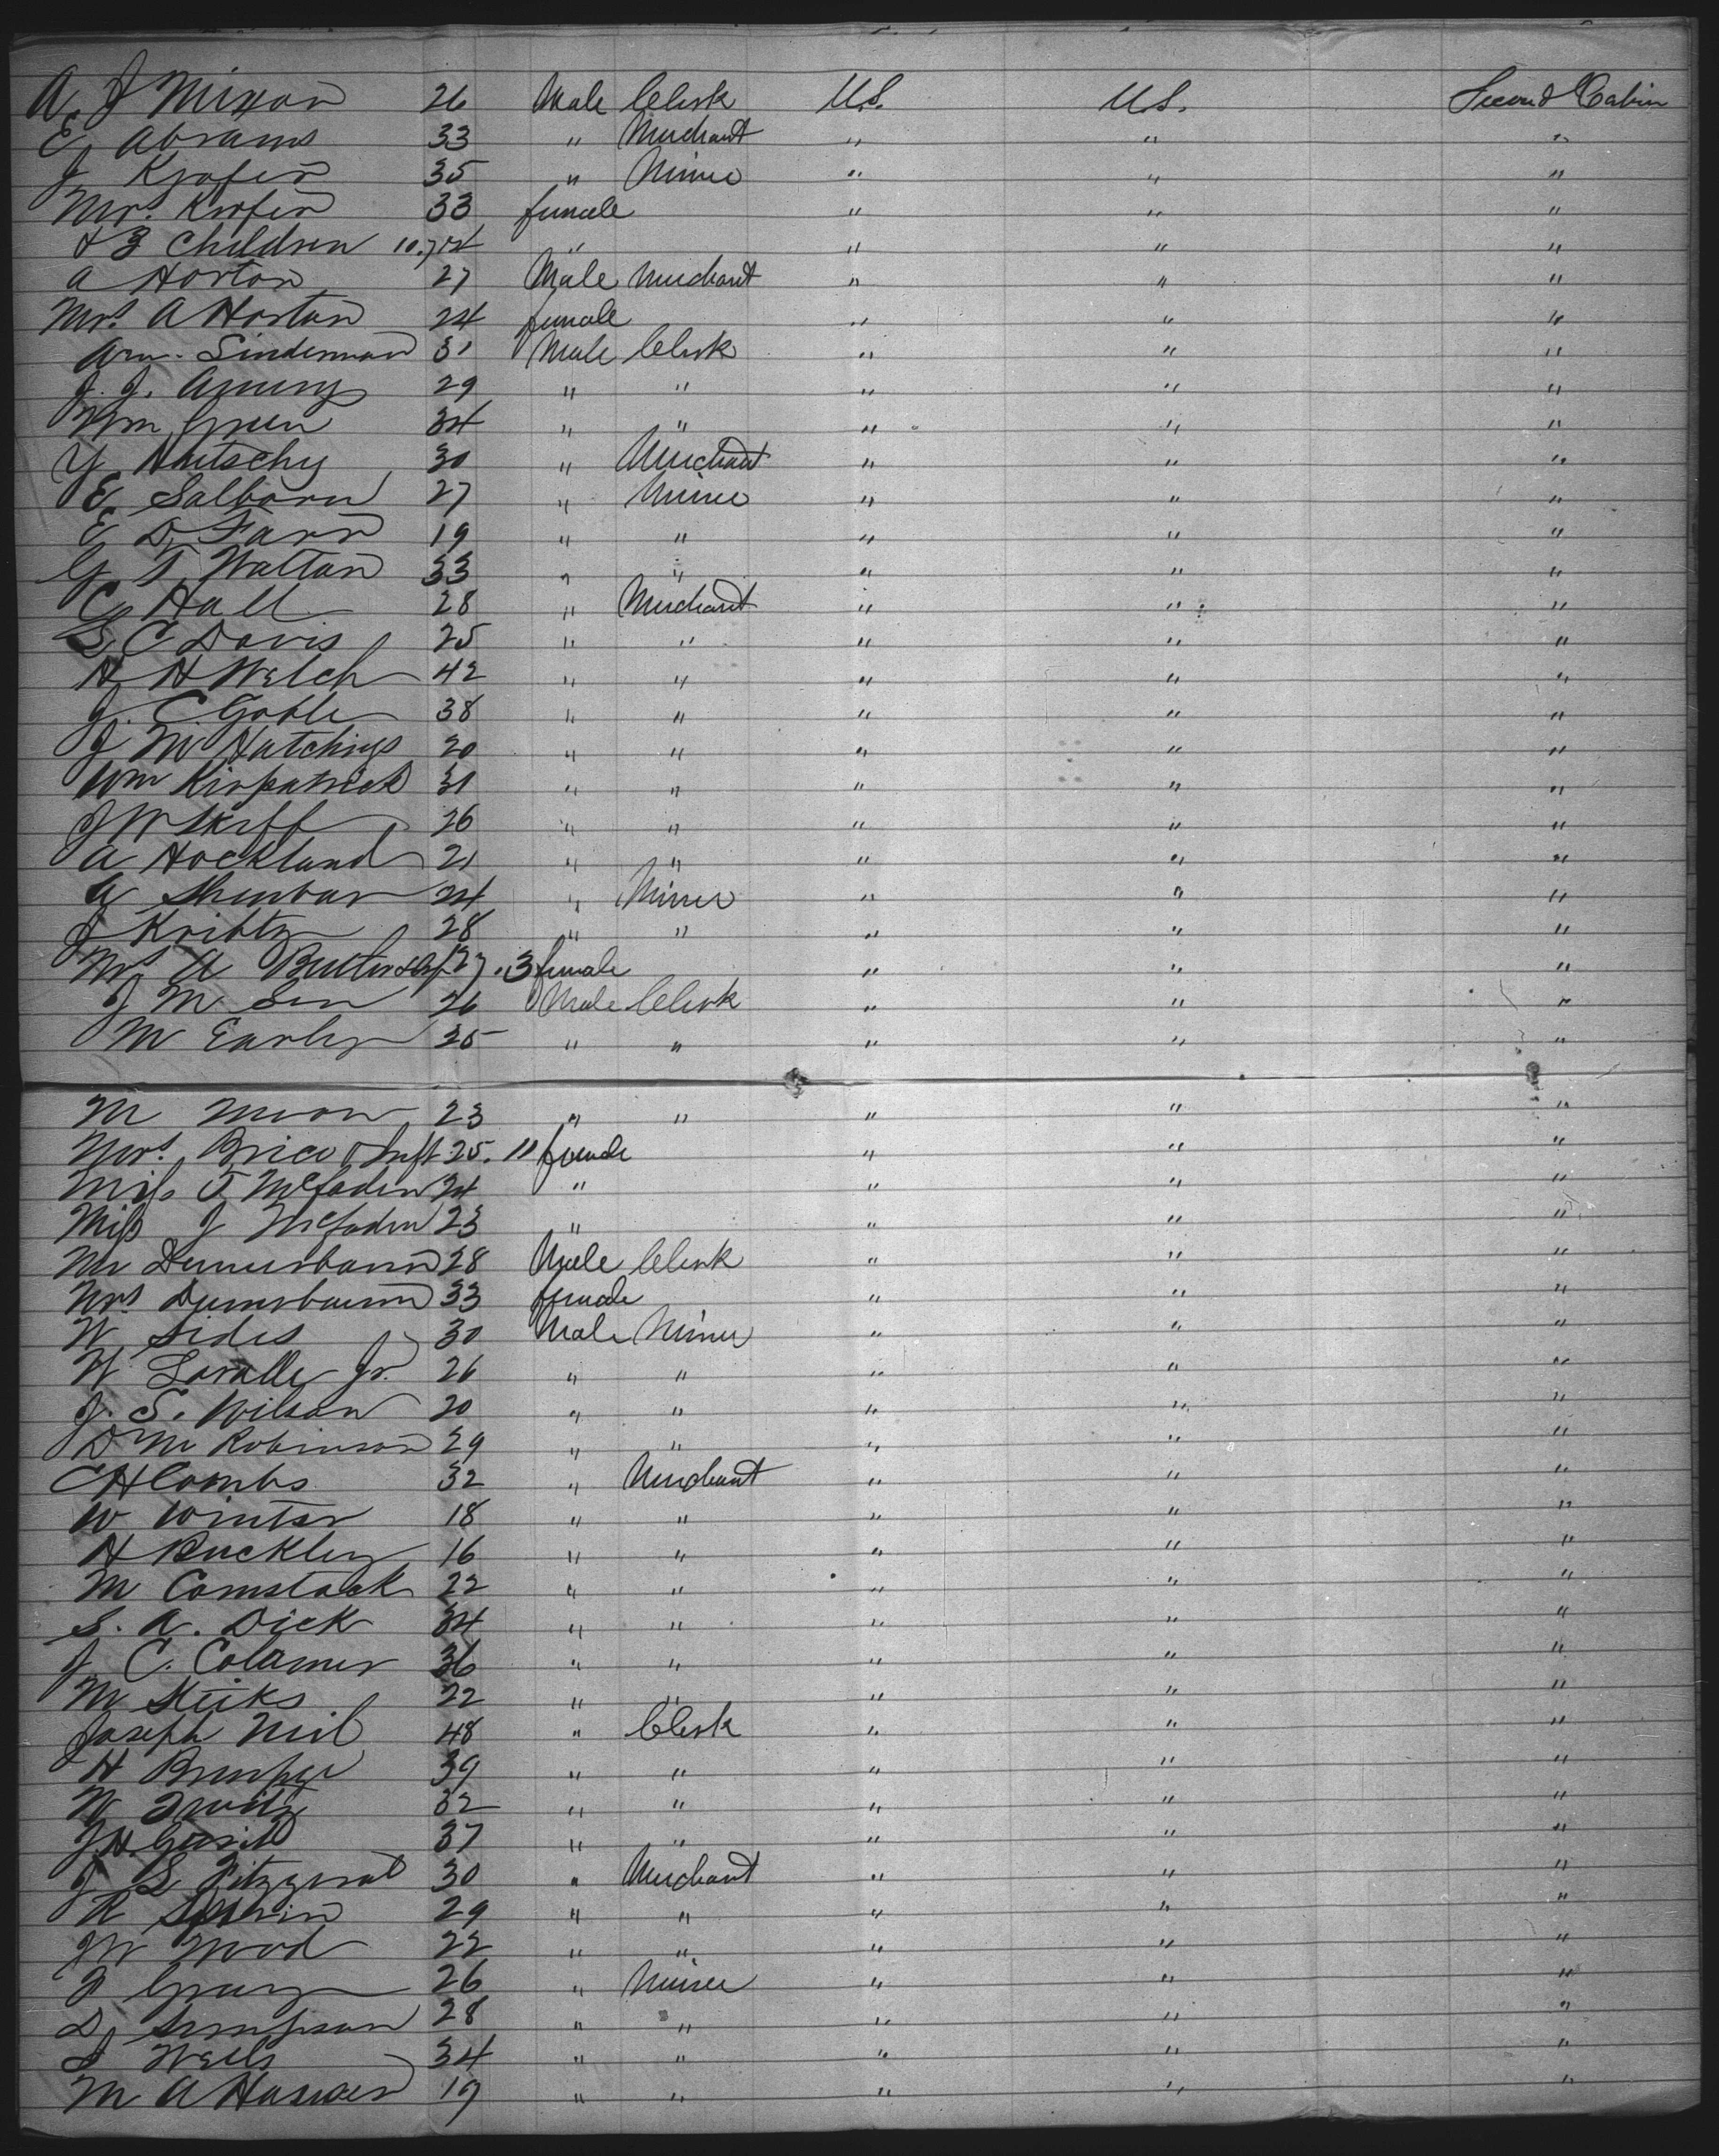 A. J Mixon 26 Male Clerk U.S. U.S. Second Cabin
E Abrams 33 " Merchant " " "
J Krofer 35 " Miner " " "
Mrs. Krofer 33 female " " "
& 3 Children 10,7 " " " "
A Horton 27 Male Merchant " " "
Mrs. A Horton 24 female " " "
Linderman 31 Male Clerk " " "
J. J. 29 " " " " "
Wm Green 34 " " " " "
Y 30 " Merchant " " "
E Salborn 27 " Miner " " "
E D. Farr 19 " " " " "
G T Walton 33 " " " " "
C Hall 28 " Merchant " " "
S C Davis 25 " " " " "
H H Welch 42 " " " " "
J. C. Goble 38 " " " " "
J M Hutchings 20 " " " " "
Wm Kirpatrick 31 " " " " "
J W Skiff 26 " " " " "
A Hockland 21 " " " " "
A 24 " Miner " " "
J Kribtz 28 " " " " "
Mrs A Butler & 27.3 female " " "
J M 26 Male Clerk " " "
M Early 25 " " " " "
M Moon 23 " " " " "
Mrs. Brice & Inft 25. 11 female " " "
Miss T McFaden 24 " " " "
Miss J McFaden 23 " " " "
Mr 28 Male Clerk " " "
Mrs 33 female " " "
W Sides 30 Male Miner " " "
W Lavalle Jr. 26 " " " " "
J. S. Wilson 20 " " " " "
D M Robinson 29 " " " " "
C H Combs 32 " Merchant " " "
W Winter 18 " " " " "
H Buckley 16 " " " " "
M Comstock 22 " " " " "
S. A. Dick 34 " " " " "
J C. Colamer 36 " " " " "
M Steiks 22 " " " " "
Joseph Neil 48 " Clerk " " "
H 39 " " " " "
W 32 " " " " "
J H. 37 " " " " "
J S Fitzgerat 30 " Merchant " " "
R 29 " " " " "
J W Wood 22 " " " " "
26 " Miner " " "
D Simpson 28 " " " " "
S Wells 34 " " " " "
M A 19 " " " " "